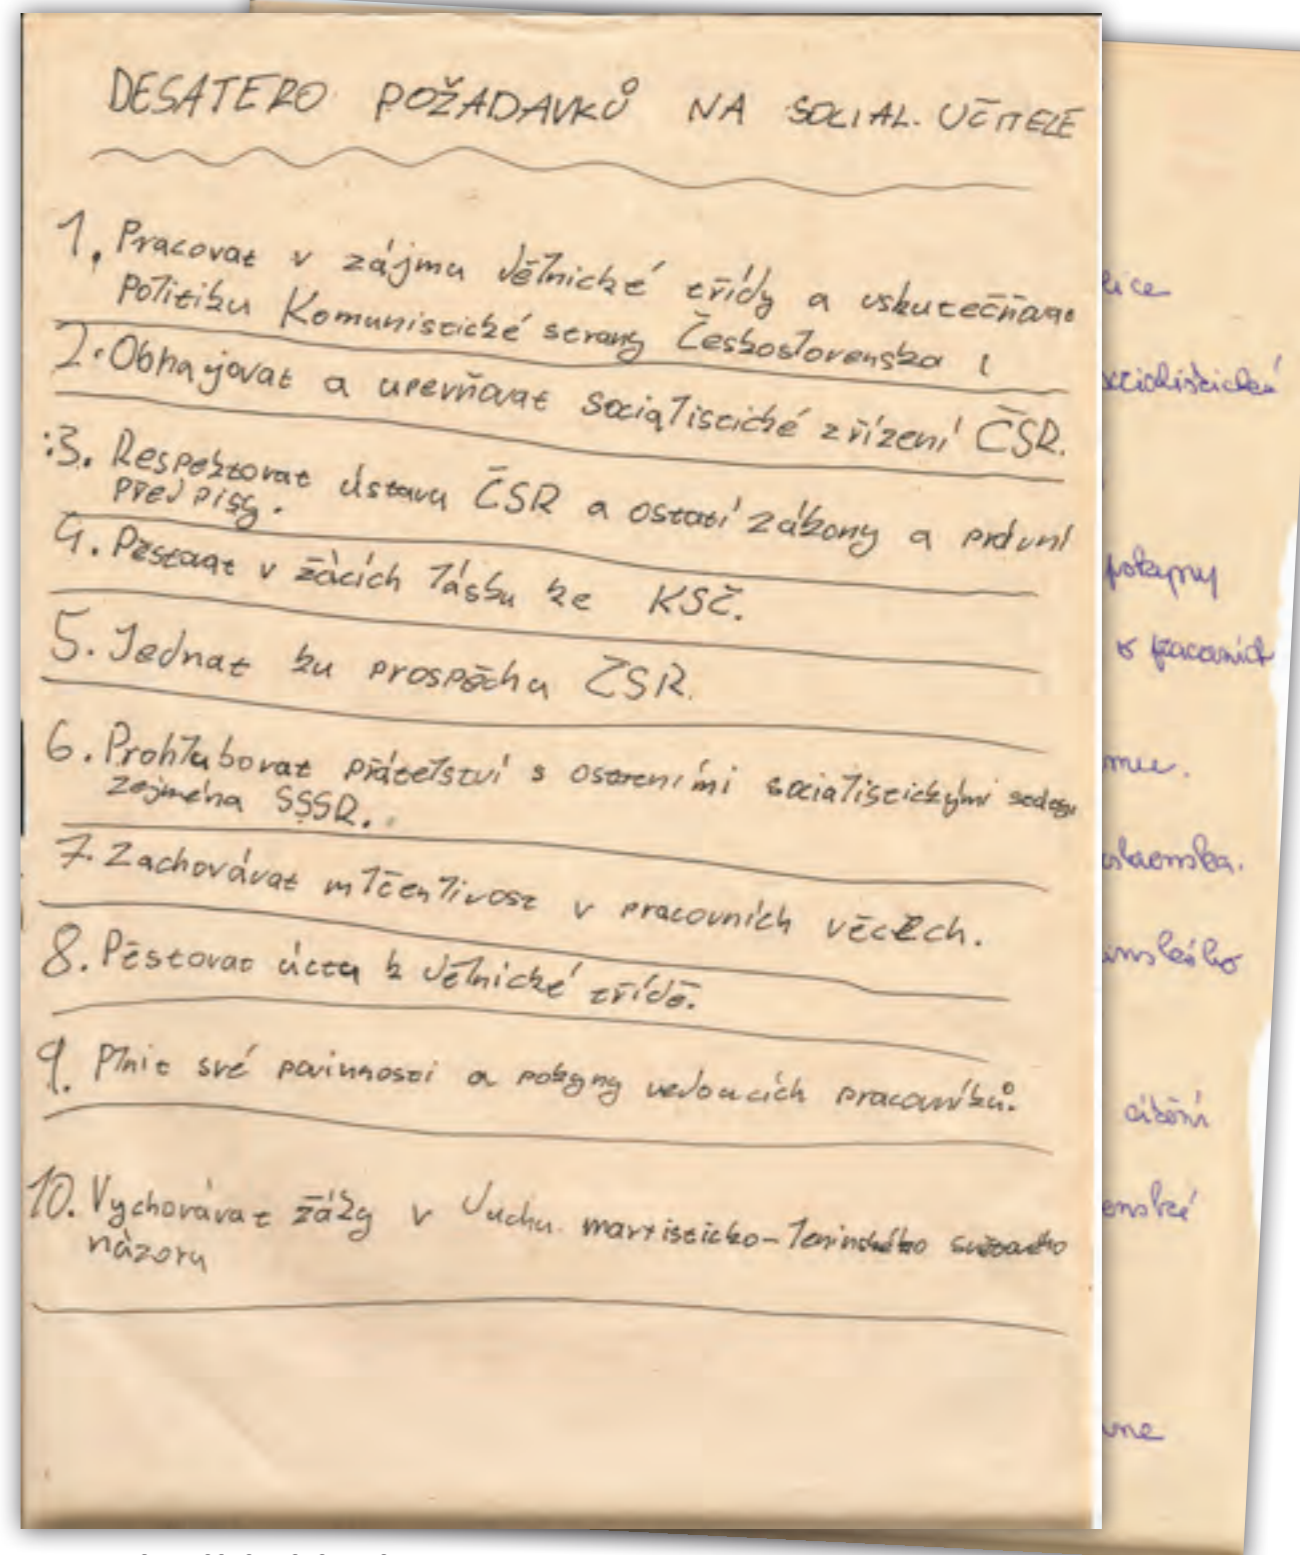 DESATERO POŽADAVKŮ NA SOCIAL. UČITELE
1. Pracovat v zájmu dělnické třídy a uskutečňovat
politiku Komunistické strany Československa !
2. Obhajovat a upevňovat socialistické zřízení ČSR.
3. Respektovat ústavu ČSR a ostatí zákony a právní
předpisy.
4. Pěstovat v žácích lásku ke KSČ.
5. Jednat ku prospěchu ČSR.
6. Prohlubovat přátelství s ostatními socialistickými
zejména SSSR.
7. Zachovávat mlčenlivost v pracovních věcech.
8. Pěstovat úctu k dělnické třídě.
9. Plnit své povinnosti a pokyny vedoucích pracovníků.
10. Vychovávat žáky v duchu marxisticko-leninského světového
názoru
lice
socialistické
pokyny
v pracovních
mu.
slovenska.
inského
cítění
enské